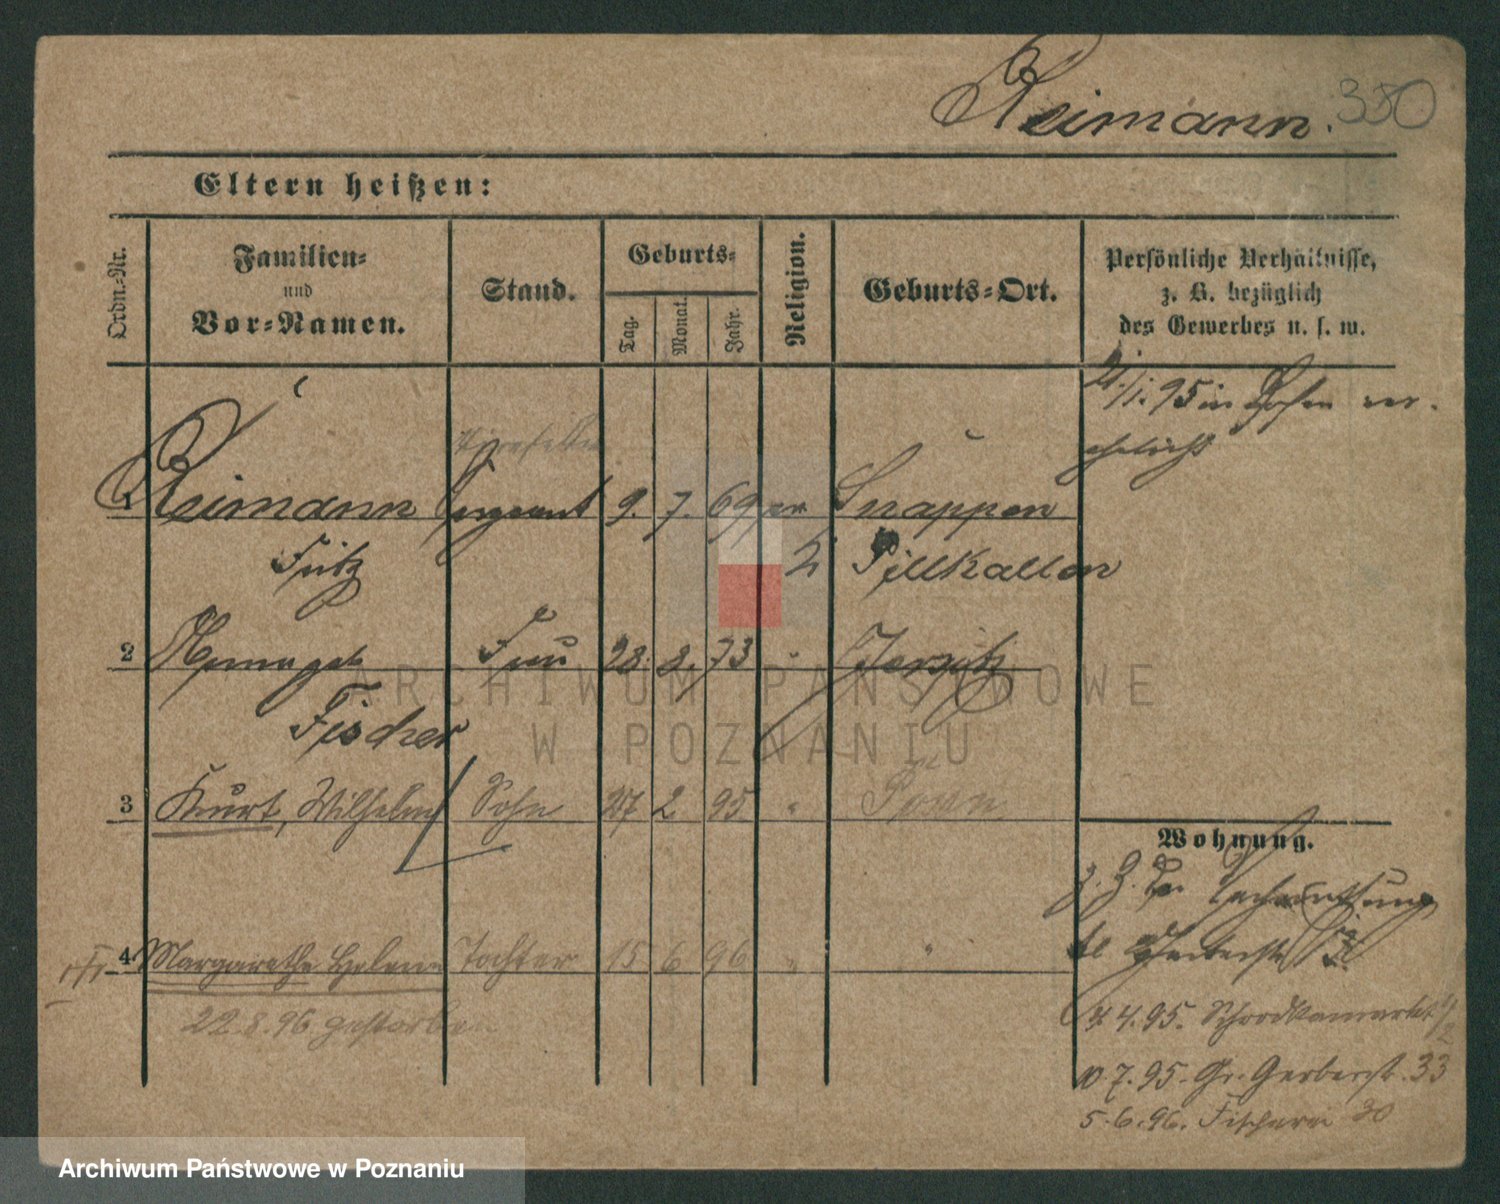 Reimann. 350
Eltern heißen:
Ordn.-Nr.
Familien-
und
Vor-Namen.
Stand.
Geburts-
Tag.
Monat.
Jahr.
Religion.
Geburts-Ort.
Persönliche Verhältnisse,
z. B. bezüglich
des Gewerbes u. s. w.
/1. 95 in Posen ver-
ehelicht
1 Reimann Sergeant 9. 7. 69 ev Snappen
Fritz Pillkallen
2 geb Frau 28. 8. 73 " Jersitz
Fischer
3 Kurt, Wilhelm Sohn 27 2 95 " Posen
Wohnung.
4 Margarethe Helene Tochter 15 6 96 " "
22.8.96 gestorben
4. 4. 95.
10. 7. 95. Gr. Gerberstr. 33
5. 6. 96. Fischerei 30
ARCHIWUM PAŃSTWOWE
W POZNANIU
Archiwum Państwowe w Poznaniu